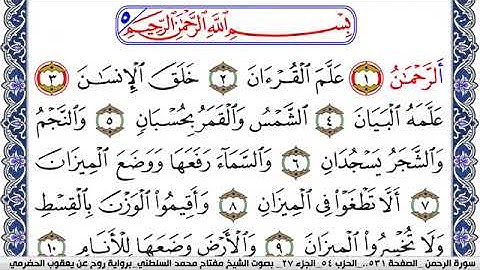 بِسْمِ اللَّهِ الرَّحْمَٰنِ الرَّحِيمِ ٥
الرَّحْمَٰنُ ١ عَلَّمَ الْقُرْءَانَ ٢ خَلَقَ الْإِنسَٰنَ ٣
عَلَّمَهُ الْبَيَانَ ٤ الشَّمْسُ وَالْقَمَرُ بِحُسْبَانٍ ٥ وَالنَّجْمُ
وَالشَّجَرُ يَسْجُدَانِ ٦ وَالسَّمَاءَ رَفَعَهَا وَوَضَعَ الْمِيزَانَ
٧ أَلَّا تَطْغَوْا فِي الْمِيزَانِ ٨ وَأَقِيمُوا الْوَزْنَ بِالْقِسْطِ
وَلَا تُخْسِرُوا الْمِيزَانَ ٩ وَالْأَرْضَ وَضَعَهَا لِلْأَنَامِ ١٠
سورة الرحمن _الصفحة ٥٣١_ الحزب ٥٤_ الجزء ٢٧ _ بصوت الشيخ مفتاح محمد السلطني_برواية روح عن يعقوب الحضرمي